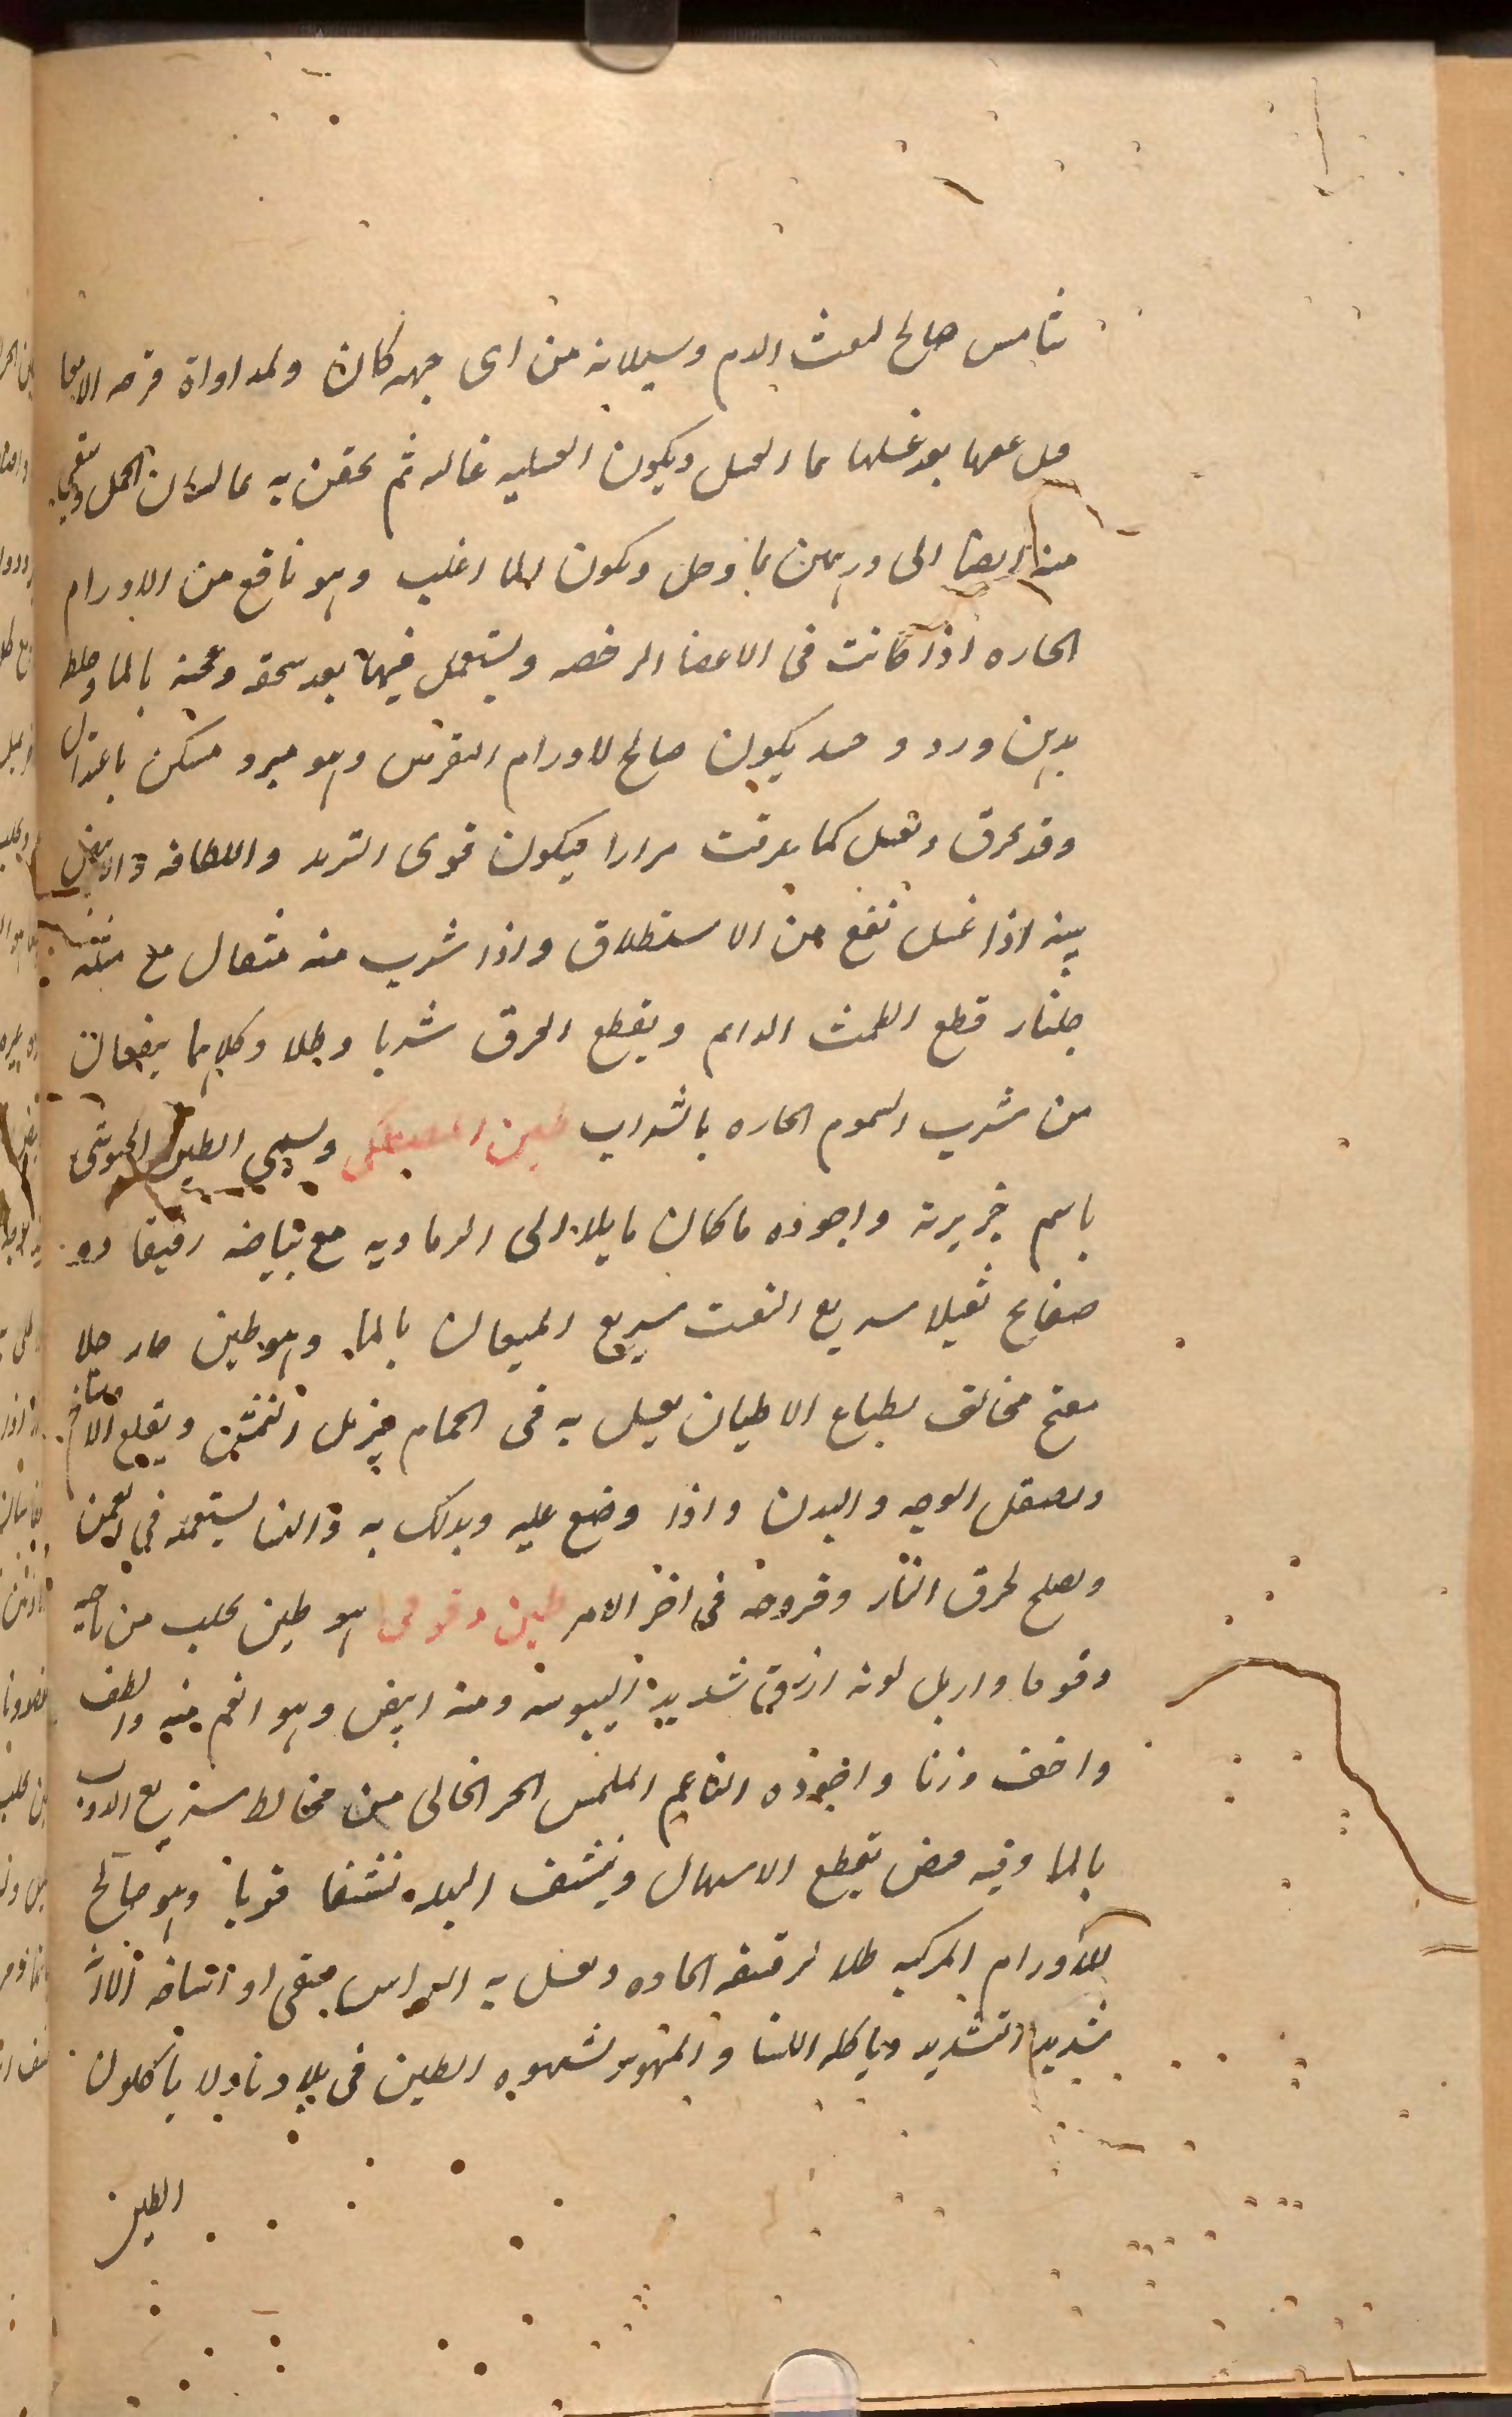 شامس صالح لنفث الدم وسيلانه من اى جهه كان ولمداواة قرحه الامعا
قبل بعد غسلها بما العسل ويكون العسليه غالبه ثم يحقن به بما لسان الحمل ويسقى
منه ايضا الى درهمين بما وخل ويكون الما اغلب وهو نافع من الاورام
الحاره اذا كانت فى الاعضا الرخصه ويستعمل فيها بعد سحقه وعجنه بالما وخلط
بدهن ورد و يكون صالح لاورام النقرس وهو مبرد مسكن باعتدال
وقد يحرق ويغسل كما عرفت مرارا فيكون قوى التبريد واللطافه والابيض
منه اذا غسل نفع من الاستطلاق واذا شرب منه مثقال مع مثله
جلنار قطع الطمث الدايم ويقطع العرق شربا وطلا وكلاهما ينفعان
من شرب السموم الحاره بالشراب طين المصطكى ويسمى الطين
باسم جزيرته واجوده ما كان مايلا الى الرماديه مع بياضه رقيقا ذو
صفايح ثقيلا سريع التفتت سريع الميعان بالما وهو طين حار جلا
مفتح مخالف لطباع الاطيان يغسل به فى الحمام فيزيل النمش ويقلع الاوساخ
ويصقل الوجه والبدن واذا وضع عليه ويدلك به والنسا يستعمله فى
ويصلح لحرق النار وقروحه فى اخر الامر طين دقوقى هو طين يجلب من ناحيه
دقوقا واربل لونه ازرق شديد اليبوسه ومنه ابيض وهو انعم منه والطف
واخف وزنا واجوده الناعم الملمس الحر الخالى من مخالط سريع الذوب
بالما وفيه قبض يقطع الاسهال وينشف البله تنشفا قويا وهو صالح
للاورام المركبه طلا لرقيقه الحاده ويغسل به الراس فينقى اوساخه
شديد التشديد وياكله النسا و لشهوه الطين فى بلادنا ولا ياكلون
الطين